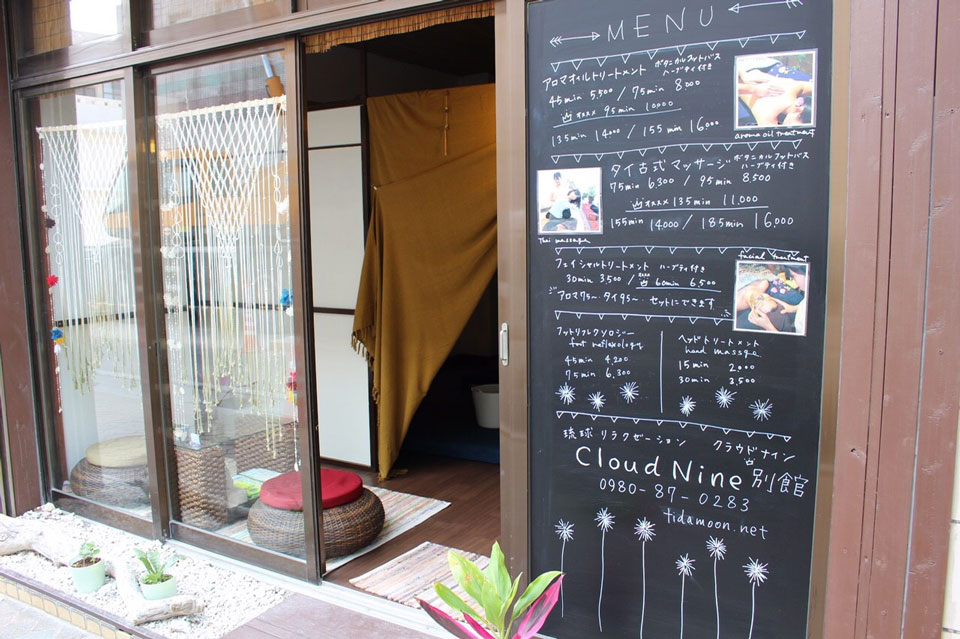 MENU
アロマオイルトリートメント ボタニカルフットバス
ハーブティ付き
45min 5,500 / 75min 8,000
オススメ 95min 10,000
135min 14,000 / 155min 16,000
aroma oil treatment
タイ古式マッサージ ボタニカルフットバス
ハーブティ付き
75min 6,300 / 95min 8,500
オススメ 135min 11,000
155min 14,000 / 185min 16,000
Thai massage
facial treatment
フェイシャルトリートメント ハーブティ付き
30min 3,500 / 60min 6,500
セットにできます
フットリフレクソロジー
foot reflexology
45min 4,200
75min 6,300
ヘッドトリートメント
head massge
15min 2,000
30min 3,500
琉球リラクゼーション クラウドナイン
Cloud Nine 別館
0980-87-0283
tidamoon.net